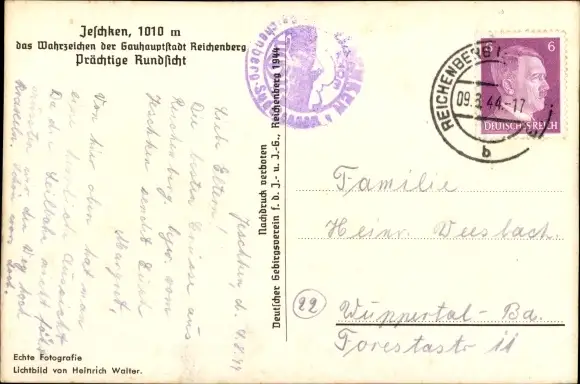 Jeschken, 1010 m
das Wahrzeichen der Gauhauptstadt Reichenberg
Prächtige Rundsicht
Jeschken, d. 9.8.44
Lieb Eltern!
Die besten Grüsse aus
Reichenberg bzw. vom
Jeschken sendet Euch
Margret.
Von hier oben hat man
eine herrliche Aussicht
Da die Seilbahn nicht fährt
mussten wir den Weg hoch
Nachdruck verboten
Deutscher Gebirgsverein f. d. J.- u. J.-G., Reichenberg 1944
REICHENBERG
09.8.44.-17
b
6
6
DEUTSCHES REICH
Familie
Heinr.
22
Wuppertal-Ba.
Forestastr 11
Echte Fotografie
Lichtbild von Heinrich Walter.